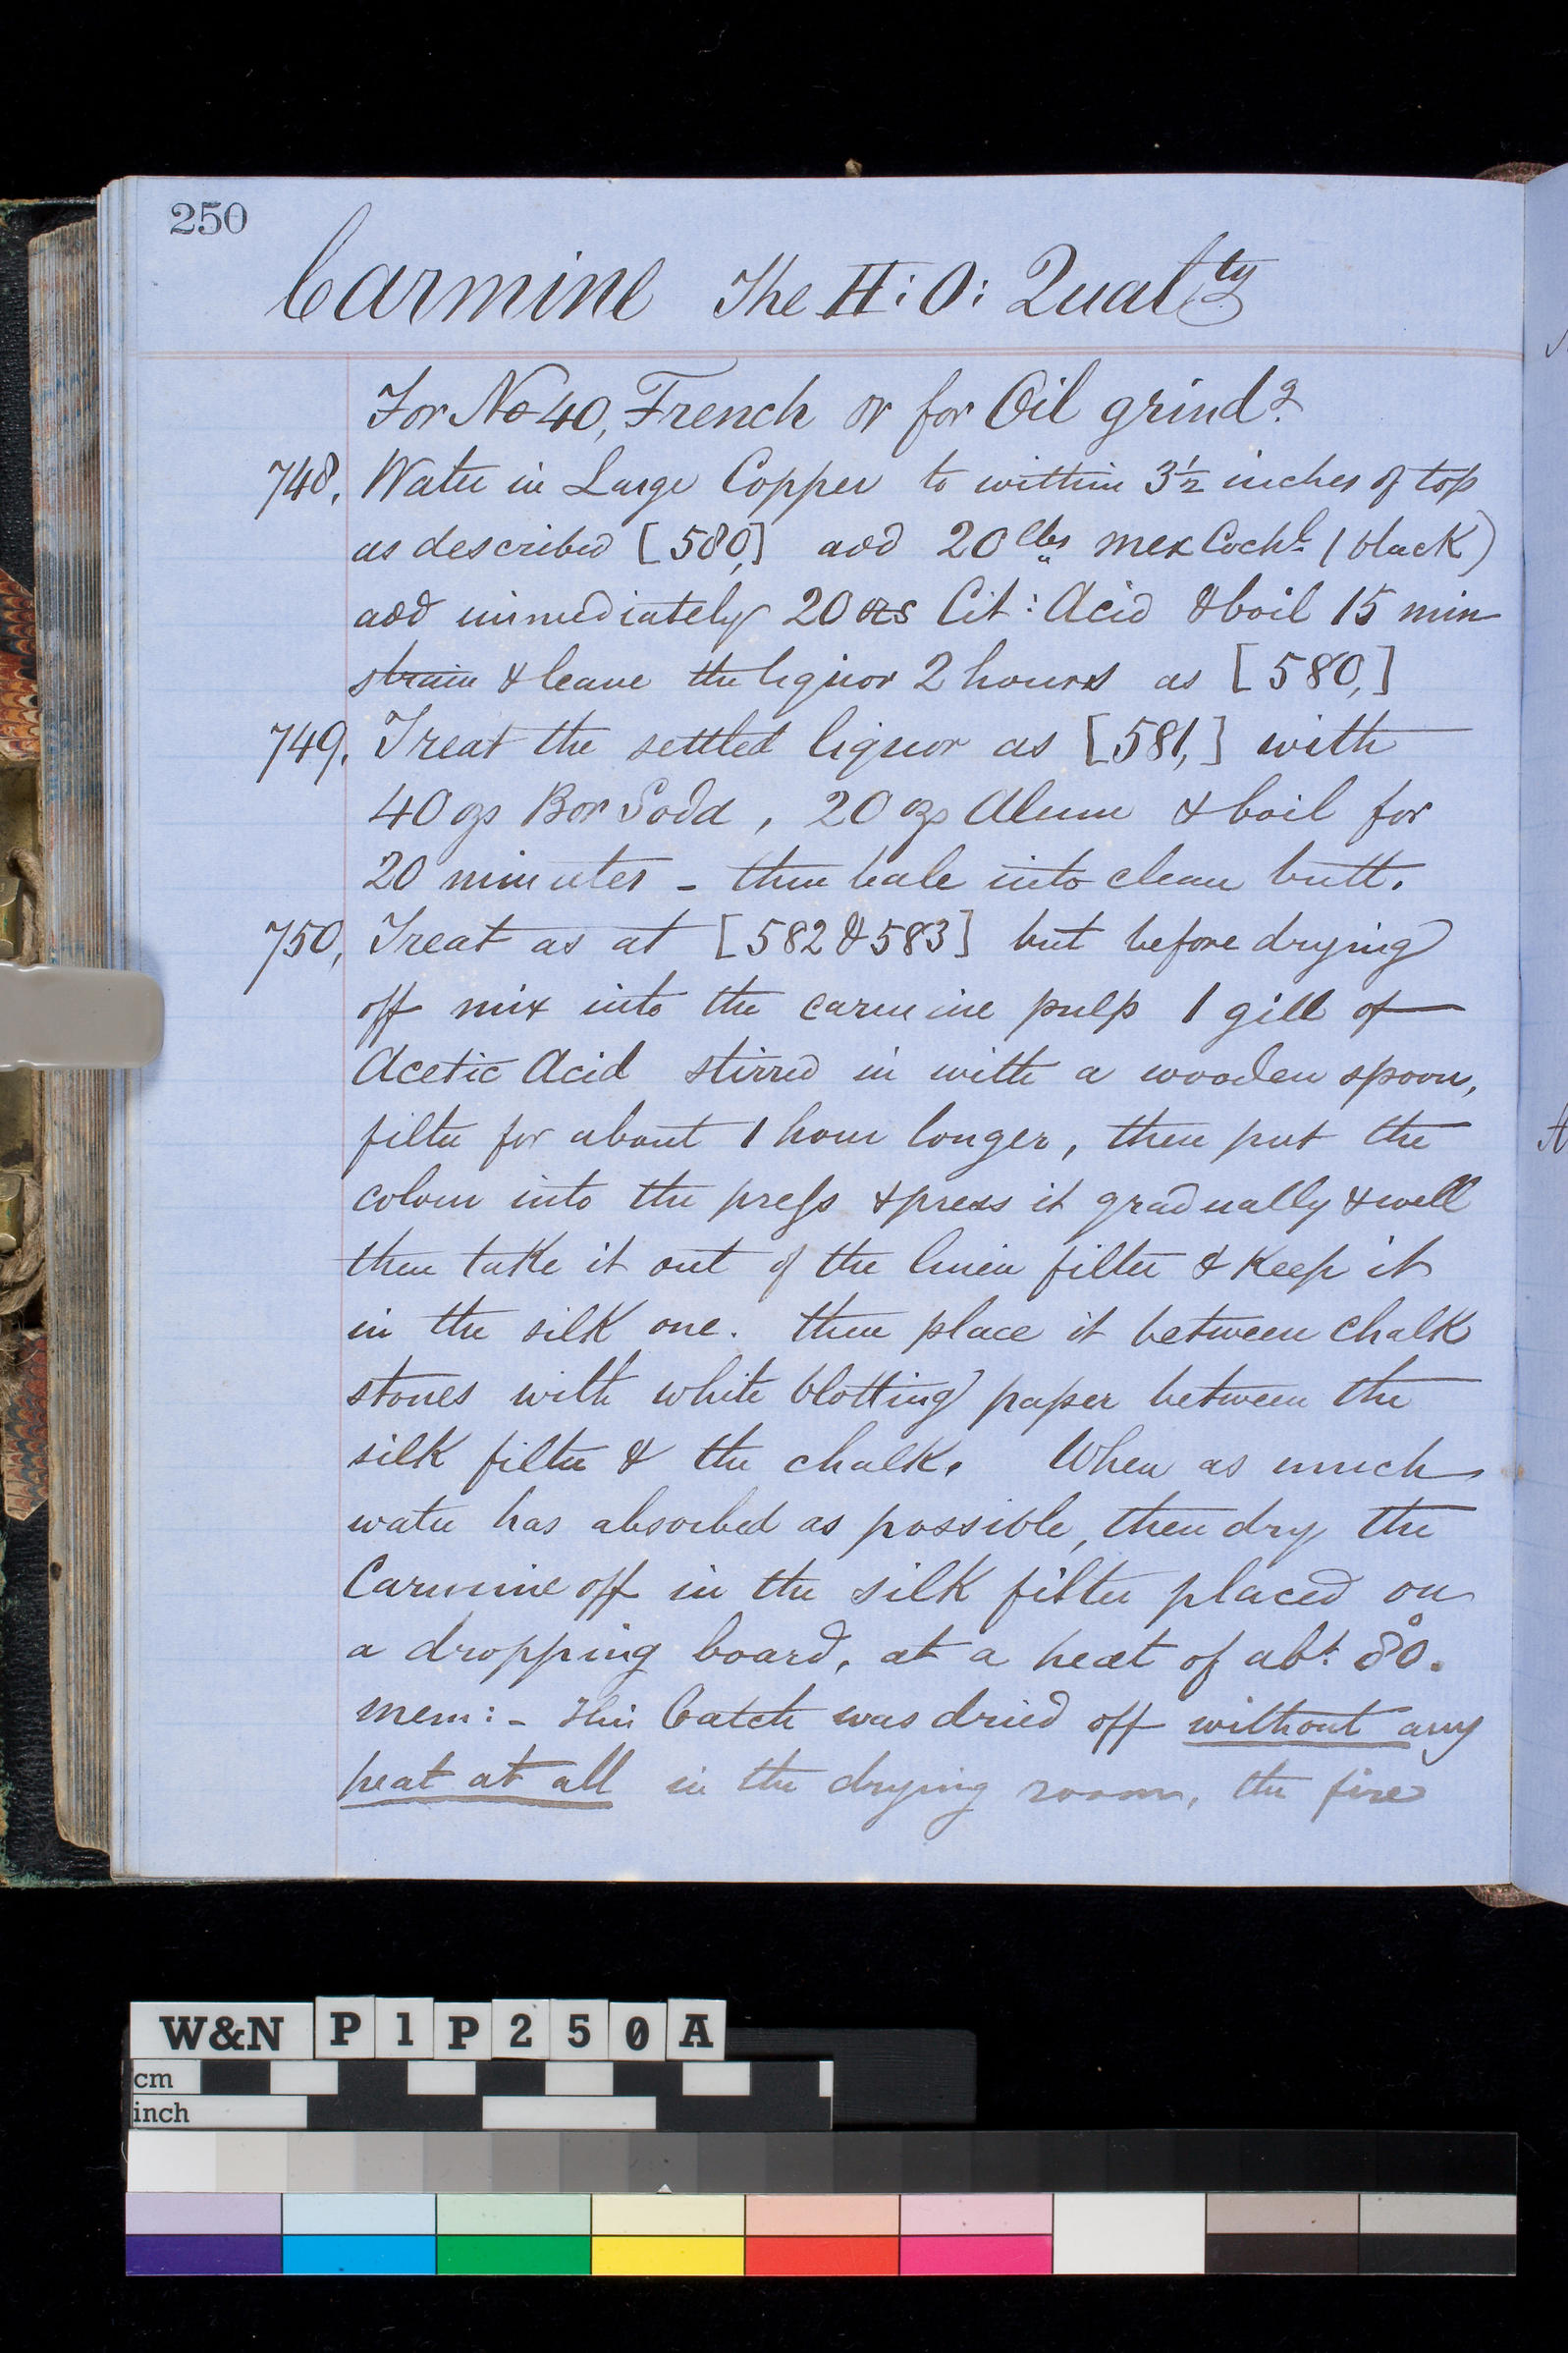 250
Carmine The H:O: Qualty
For No 40, French or for Oil grindg.
748, Water in Large Copper to within 3½ inches of top
as described [580,] add 20 lbs mex Cochl. (black)
add immediately 20 ozs Cit: Acid & boil 15 min
strain & leave the liquor 2 hours as [580,]
749. Treat the settled liquor as [581,] with
40 ozs Bor Soda, 20 ozs Alum & boil for
20 minutes - then bale into clean butt.
750, Treat as at [582 & 583] but before drying
off mix into the carmine pulp 1 gill of
Acetic Acid stirred in with a wooden spoon,
filter for about 1 hour longer, then put the
colour into the press & press it gradually & well
then take it out of the linen filter & keep it
in the silk one. then place it between chalk
stones with white blotting paper between the
silk filter & the chalk. When as much
water has absorbed as possible, then dry the
Carmine off in the silk filter placed on
a dropping board, at a heat of abt. 80°.
mem:- This batch was dried off without any
heat at all in the drying room, the fire
W&N P1P250A
cm
inch